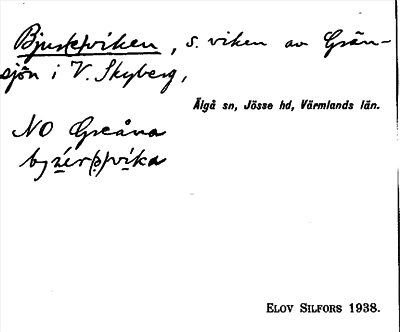 Bjur(k)viken, s. viken av Grän-
sjön i V. Skyberg,
Älgå sn, Jösse hd, Värmlands län.
NO Greåna
ELOV SILFORS 1938.